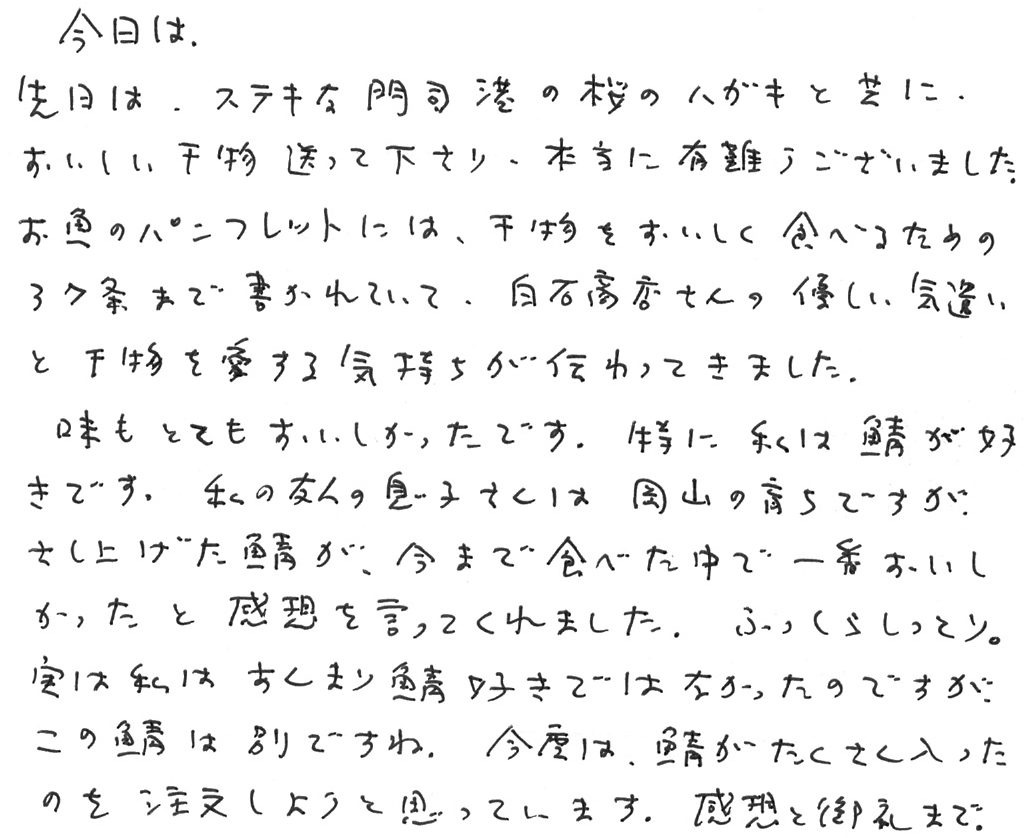 今日は.
先日は、ステキな門司港の桜のハガキと共に、
おいしい干物送って下さり、本当に有難うございました。
お魚のパンフレットには、干物をおいしく食べるための
3ヶ条まで書かれていて、白石商店さんの優しい気遣い
と干物を愛する気持ちが伝わってきました。
味もとてもおいしかったです。特に私は鯖が好
きです。私の友人の息子さんは岡山の育ちですが、
さし上げた鯖が、今まで食べた中で一番おいし
かったと感想を言ってくれました。ふっくらしっとり。
実は私はあんまり鯖好きではなかったのですが、
この鯖は別ですね。今度は、鯖がたくさん入った
のを注文しようと思っています。感想と御礼まで。